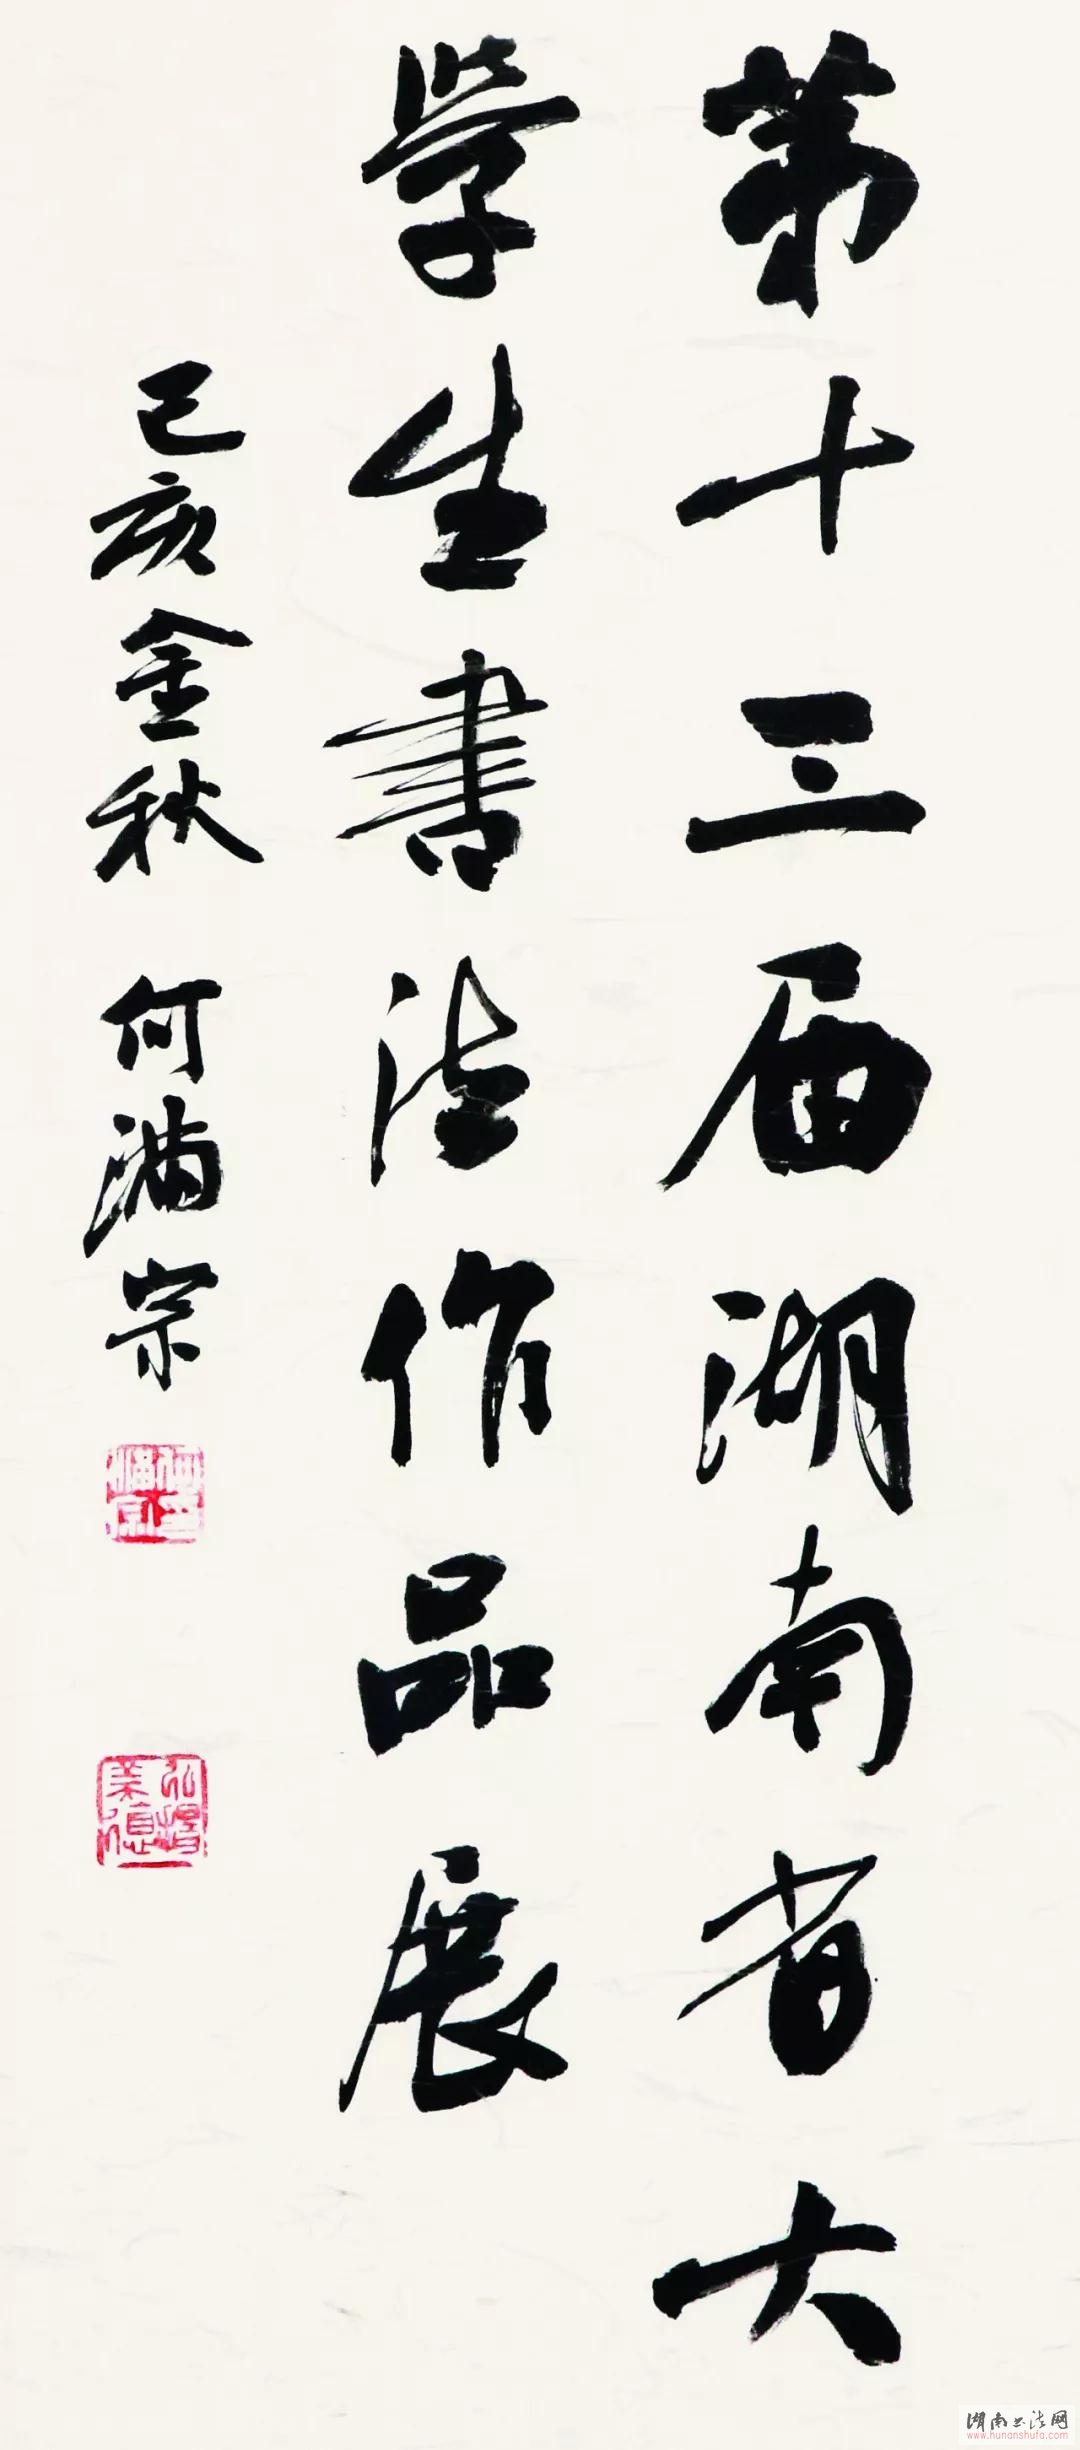 第十三届湖南省大
学生書法作品展
己亥金秋 何满宗
湖南书法网
www.hunanshufa.com